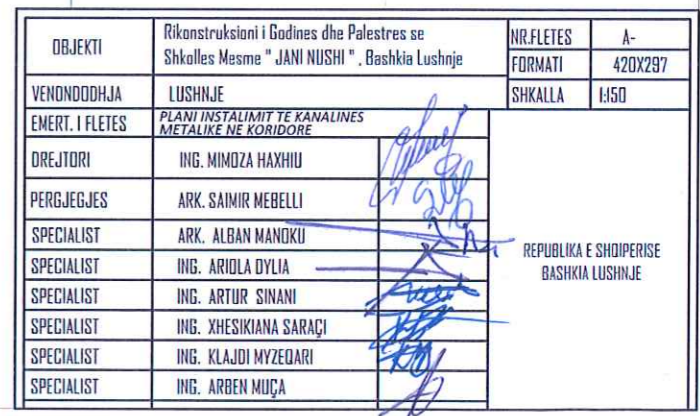 OBJEKTI
Rikonstruksioni i Godines dhe Palestres se
Shkolles Mesme " JANI NUSHI " , Bashkia Lushnje
NR.FLETES A-
FORMATI 420X297
VENONDODHJA LUSHNJE
SHKALLA 1:150
EMERT. I FLETES
PLANI INSTALIMIT TE KANALINES
METALIKE NE KORIDORE
DREJTORI ING. MIMOZA HAXHIU
PERGJEGJES ARK. SAIMIR MEBELLI
SPECIALIST ARK. ALBAN MANOKU
SPECIALIST ING. ARIOLA DYLIA
SPECIALIST ING. ARTUR SINANI
SPECIALIST ING. XHESIKIANA SARAÇI
SPECIALIST ING. KLAJDI MYZEQARI
SPECIALIST ING. ARBEN MUÇA
REPUBLIKA E SHQIPERISE
BASHKIA LUSHNJE